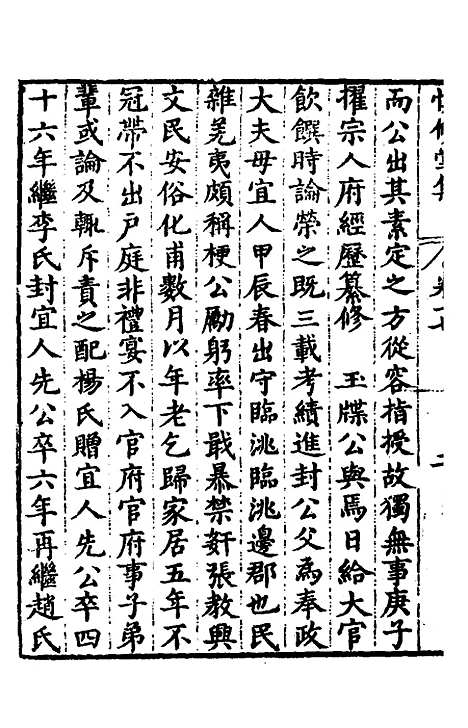 而公出其素定之方從容指授故獨無事庚子
擢宗人府經歷纂修　玉牒公與焉日給大官
飲饌時論榮之既三載考績進封公父為奉政
大夫母宜人甲辰春出守臨洮臨洮邊郡也民
雜羌夷頗稱梗公勵躬率下戢暴禁奸張教興
文民安俗化甫數月以年老乞歸家居五年不
冠帶不出戶庭非禮宴不入官府官府事子弟
輩或論及輒斥責之配楊氏贈宜人先公卒四
十六年繼李氏封宜人先公卒六年再繼趙氏